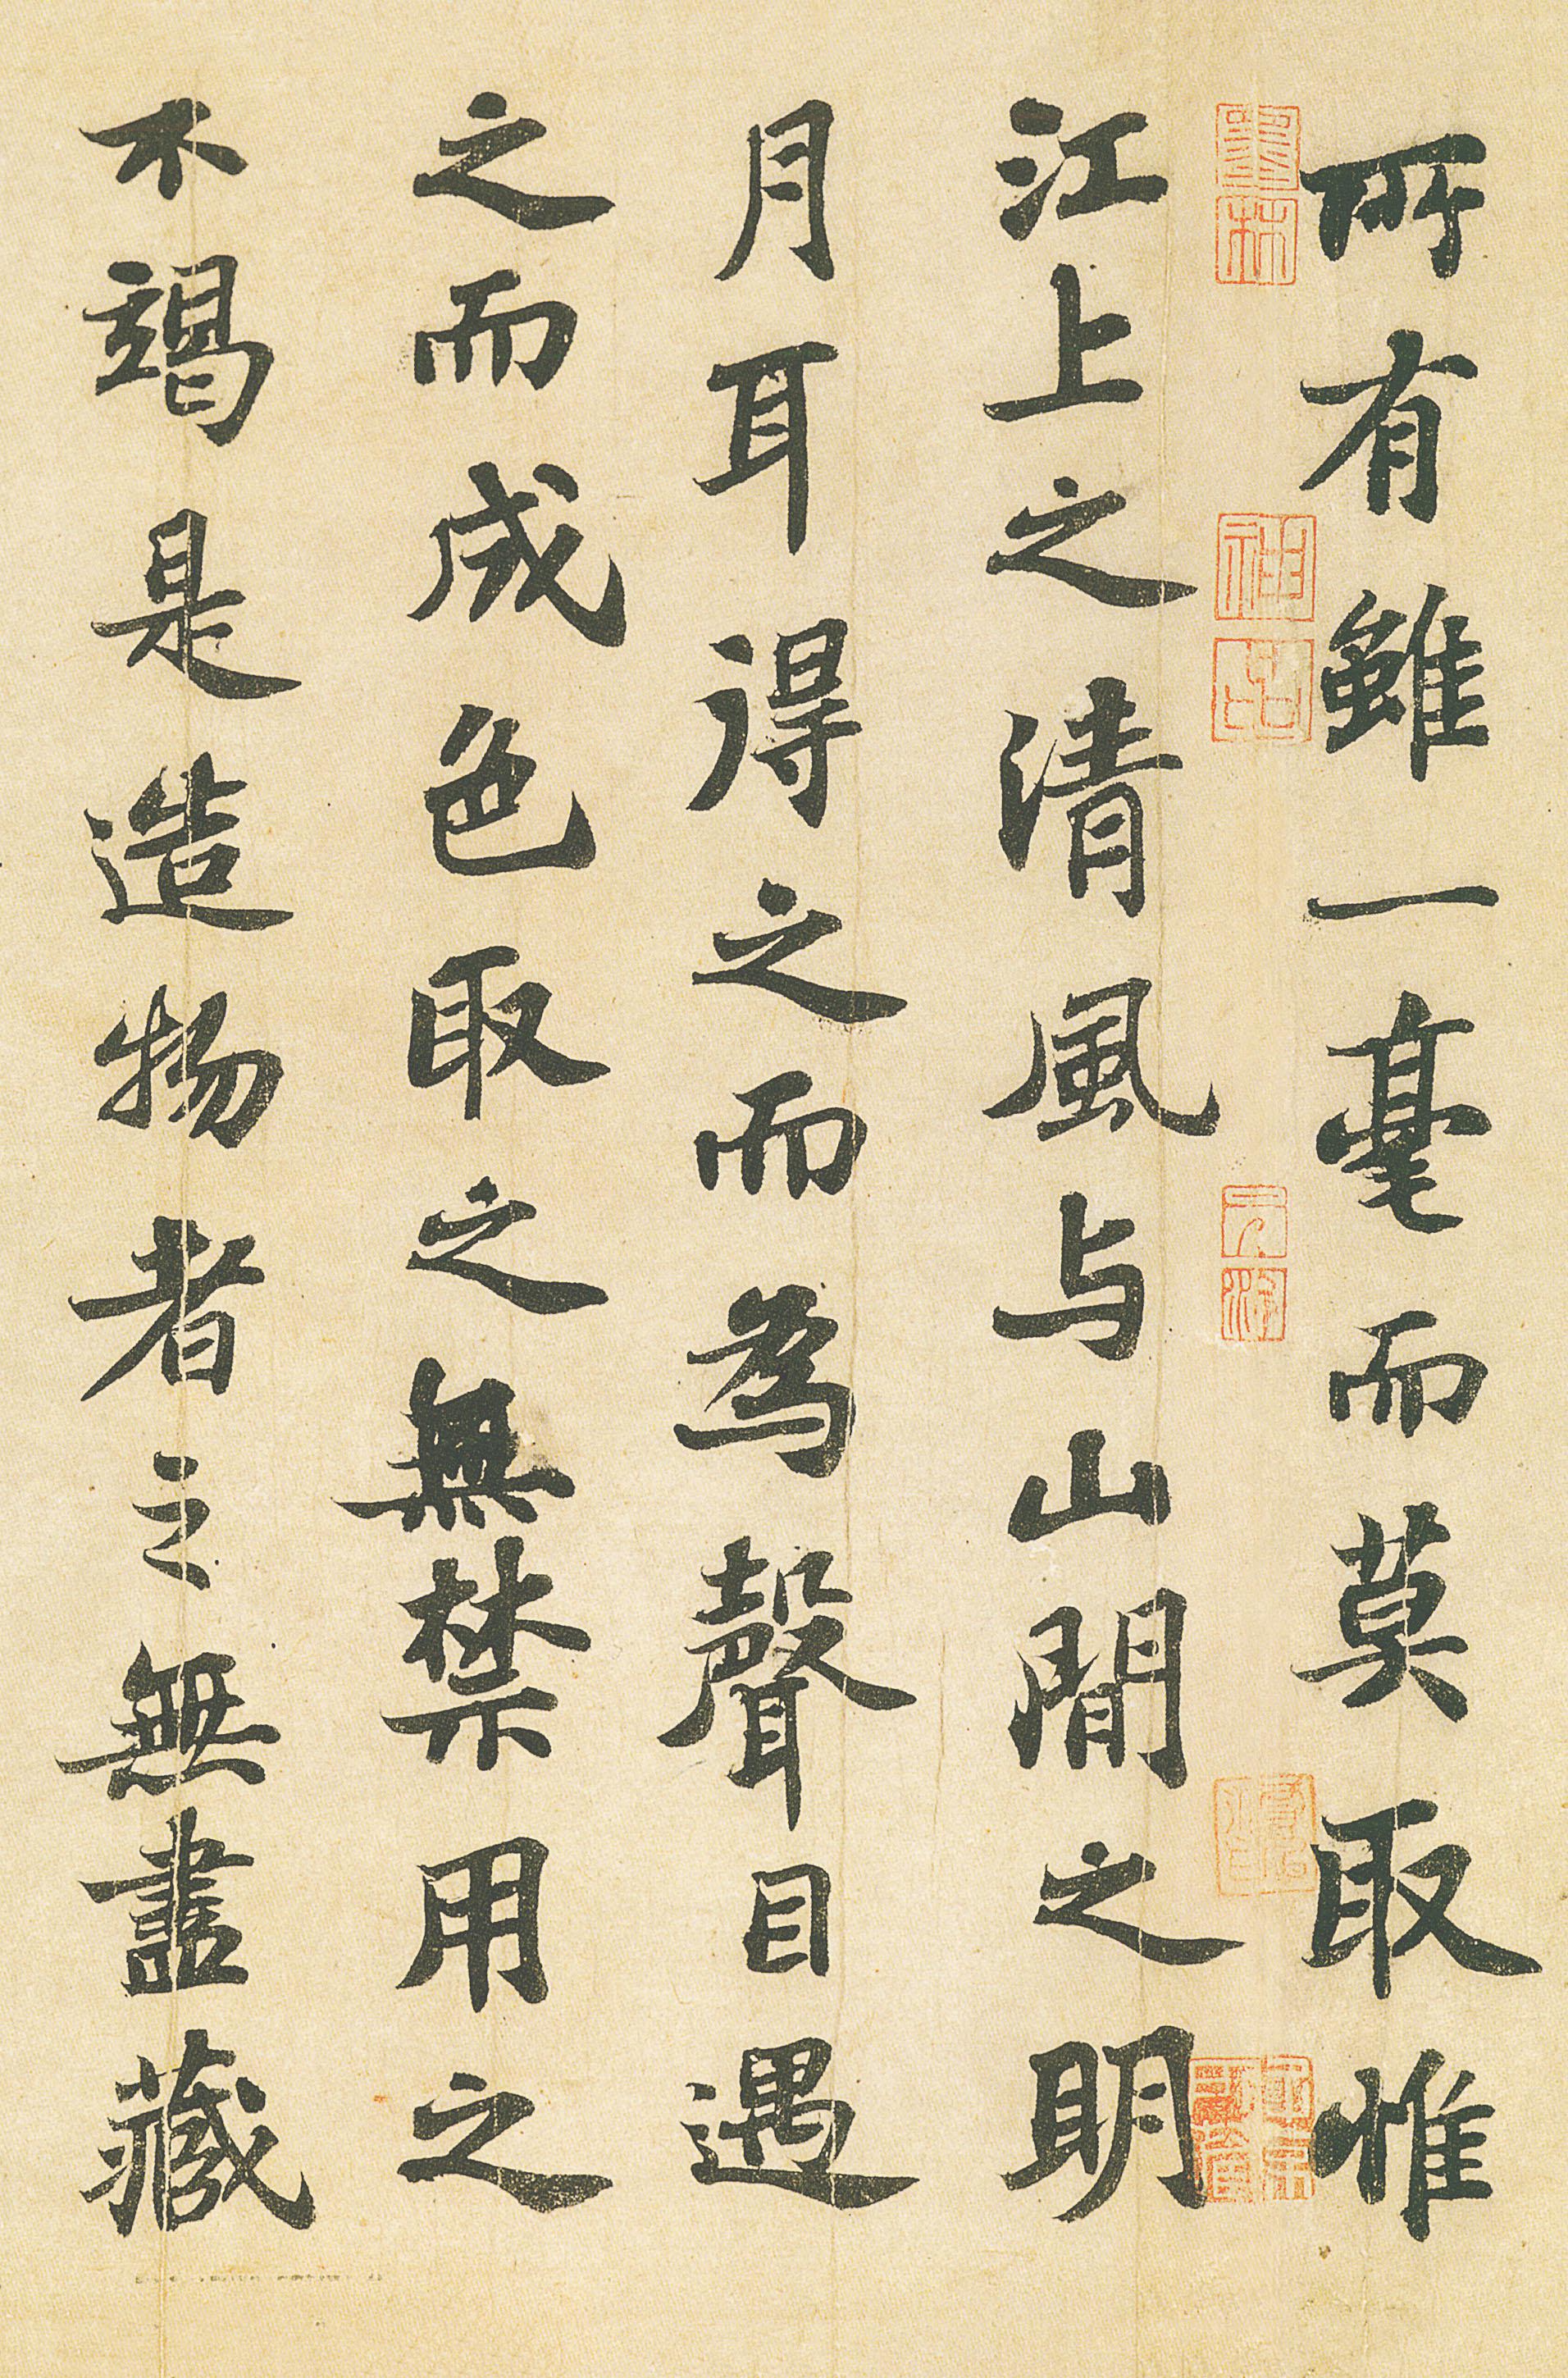 所有雖一毫而莫取惟
江上之清風与山間之明
月耳得之而為聲目遇
之而成色取之無禁用之
不竭是造物者之無盡藏